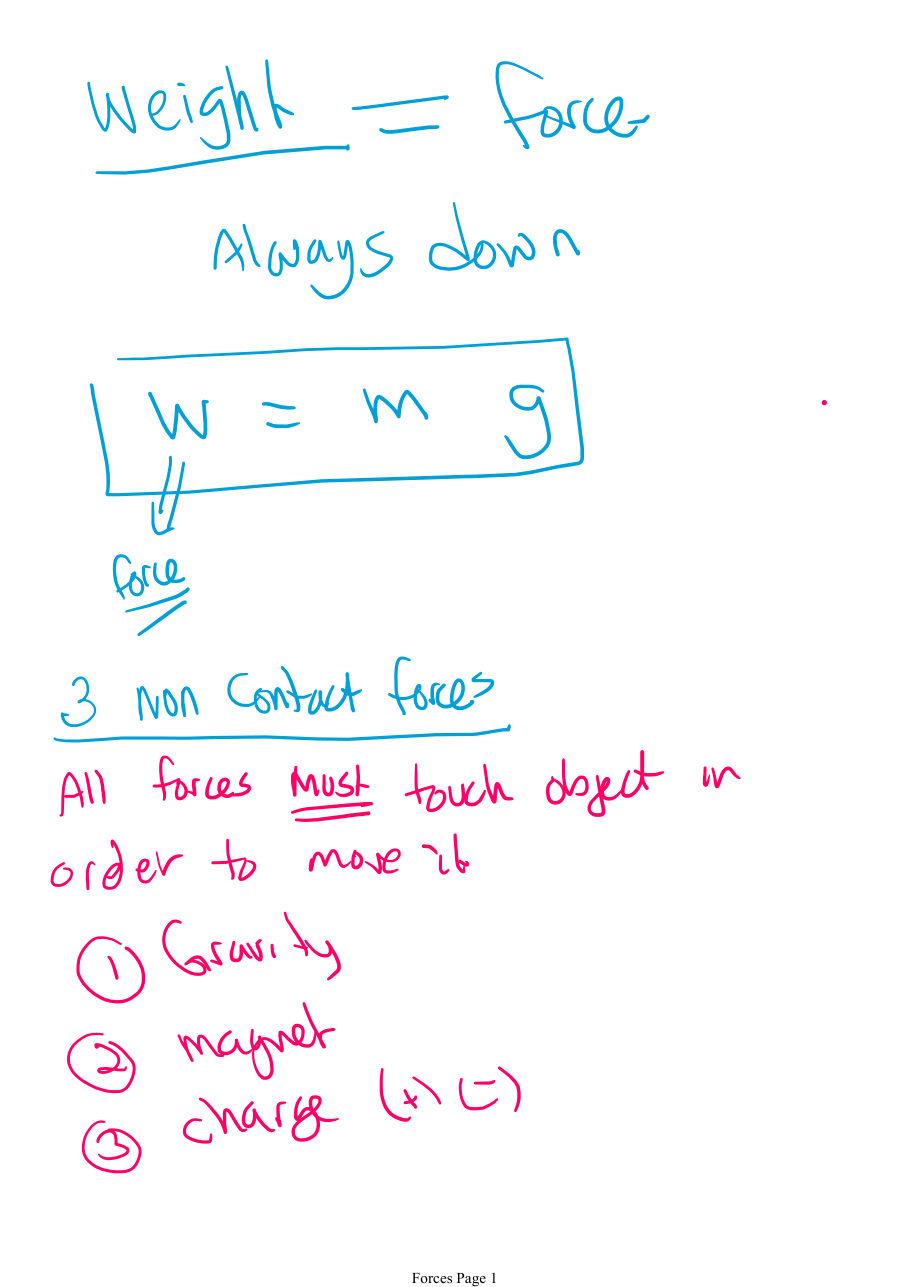 Weight = force
Always down
W = m g
force
3 Non Contact forces
All forces Must touch object in
order to move it
1 Gravity
2 magnet
3 charge (+) (-)
Forces Page 1